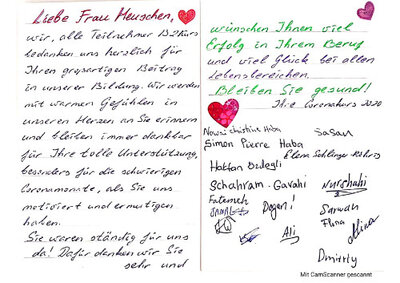 Liebe Frau Meuschen,
wir, alle Teilnehmer B2Kurs
bedanken uns herzlich für
Ihren großartigen Beitrag
in unserer Bildung. Wir werden
mit warmen Gefühlen in
unseren Herzen an Sie erinnern
und bleiben immer dankbar
für Ihre tolle Unterstützung,
besonders für die schwierigen
Coronamonate, als Sie uns
motiviert und ermutigen
haben.
Sie waren ständig für uns
da! Dafür danken wir Sie
sehr und
wünschen Ihnen viel
Erfolg in Ihrem Beruf
und viel Glück bei allen
Lebensbereichen.
Bleiben Sie gesund!
Ihre Coronakurs 2020
christine Haba
Sasan
Simon Pierre Haba
Elem
Hakkan Bzdegli
Schahram. Gavahi
Nurshahi
Fatemeh
Dogen!
Sarwan
Jamal
Flina
Alina
Ali
Dmitriy
Mit CamScanner gescannt